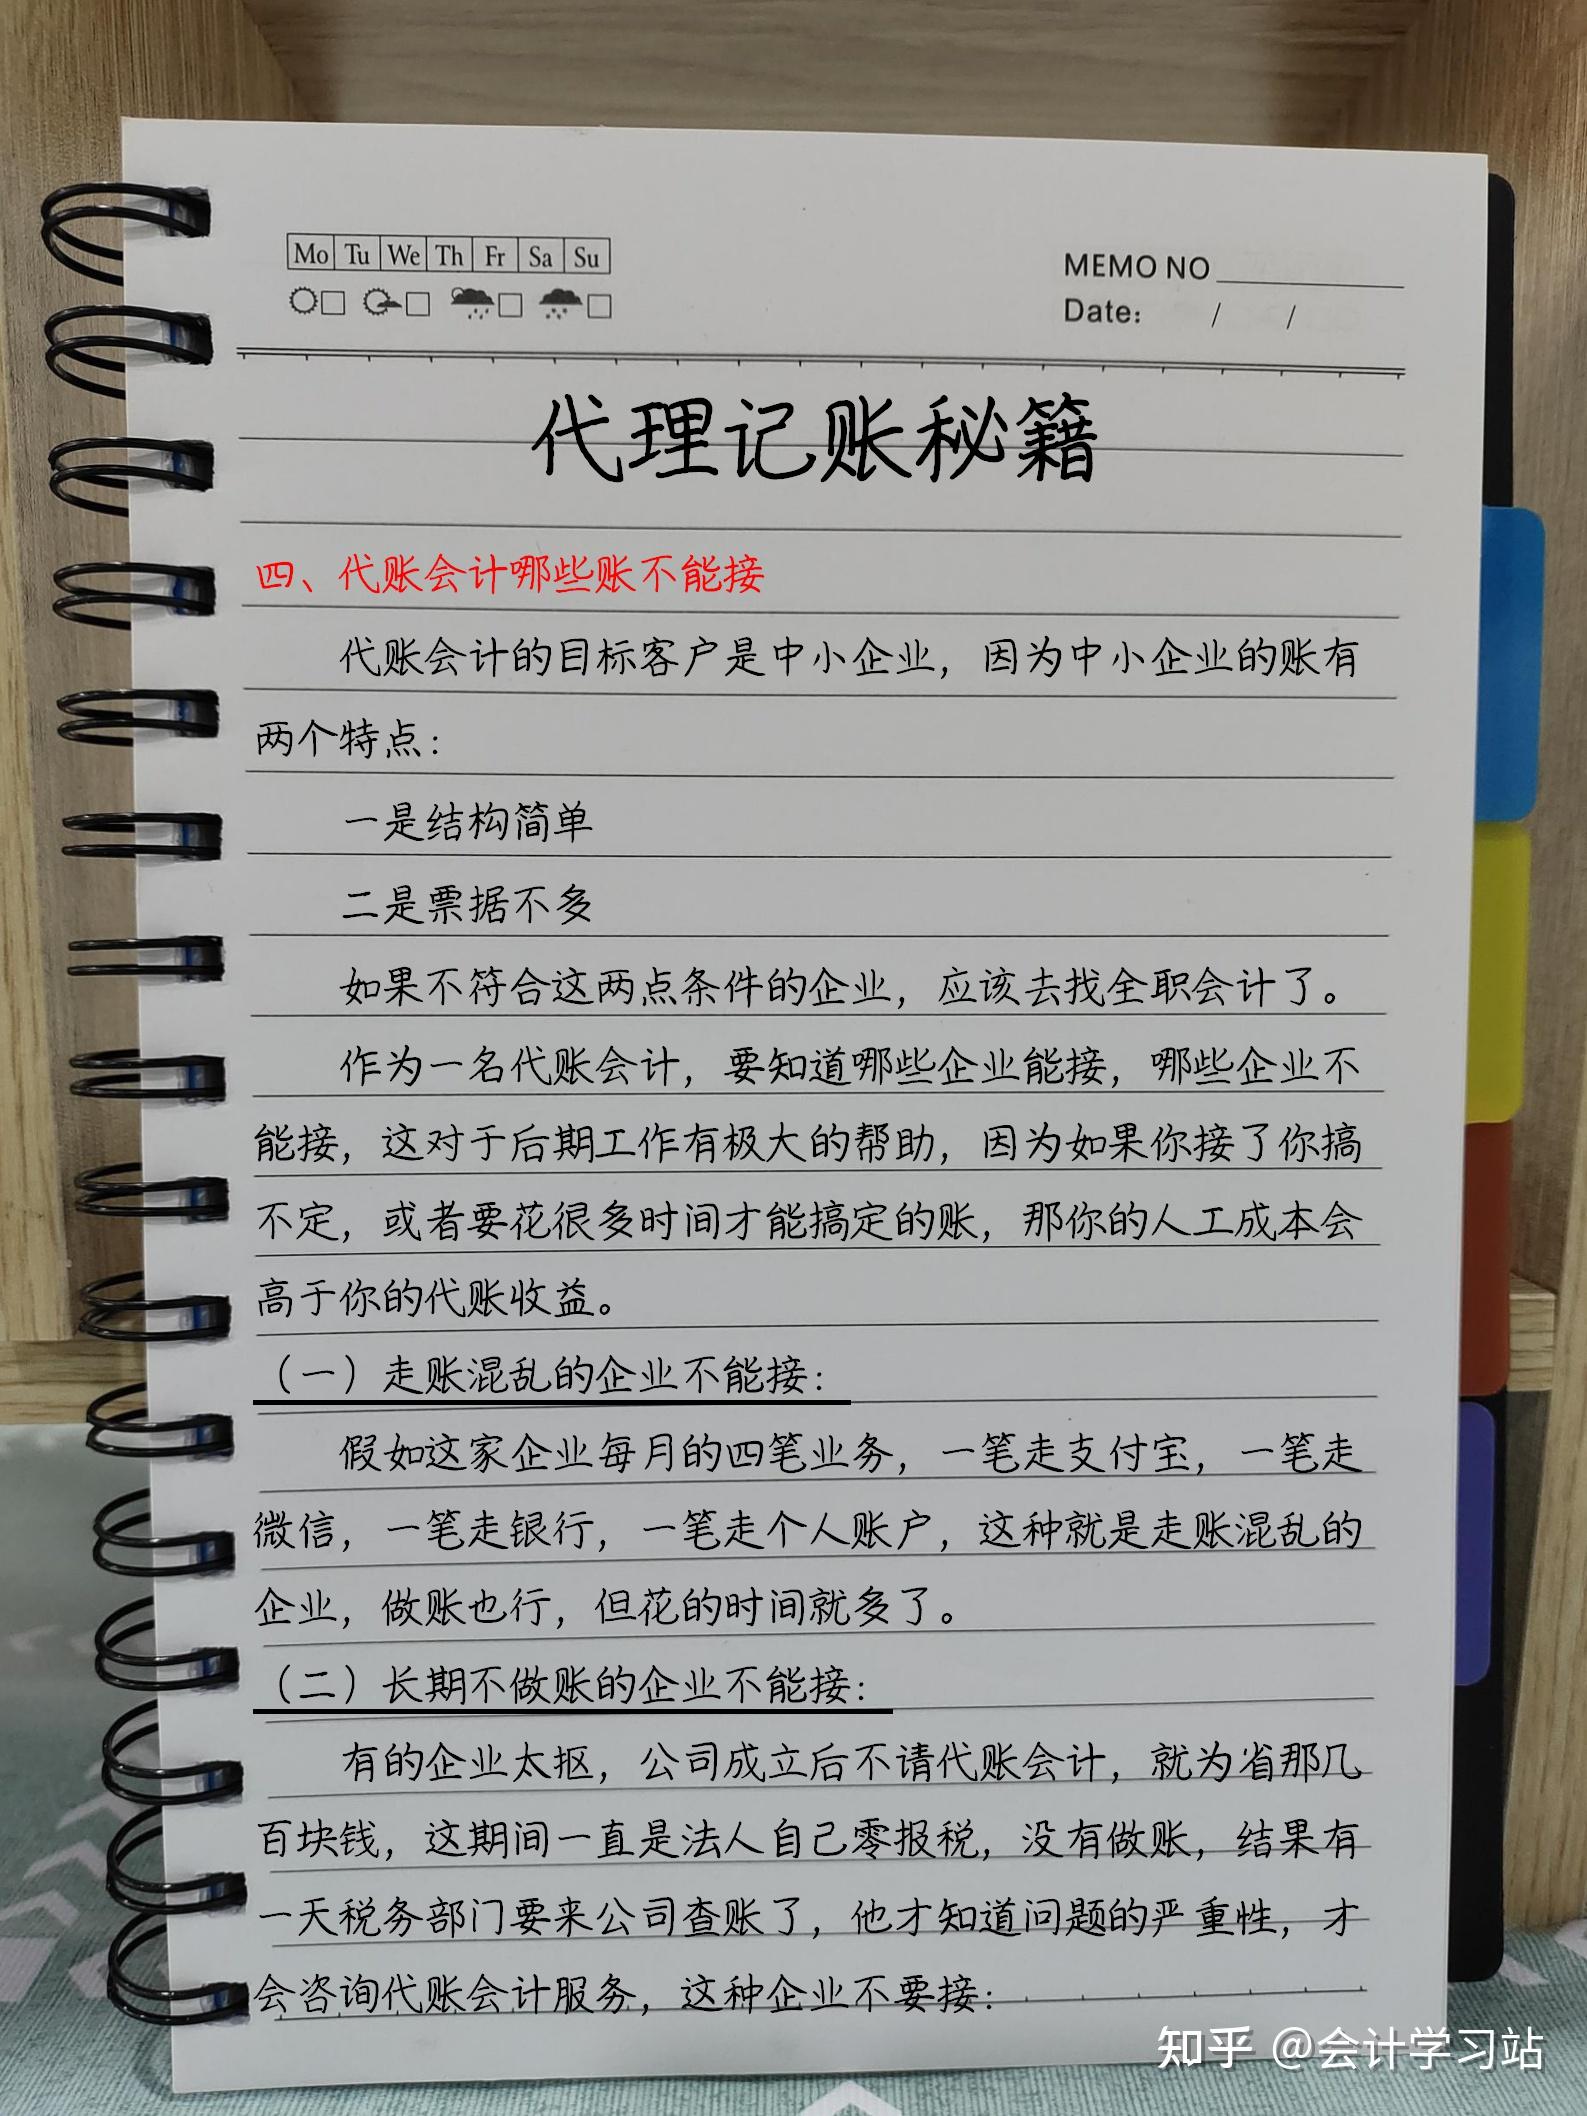 Mo Tu We Th Fr Sa Su
MEMO NO
Date: / /
代理记账秘籍
四、代账会计哪些账不能接
代账会计的目标客户是中小企业，因为中小企业的账有
两个特点：
一是结构简单
二是票据不多
如果不符合这两点条件的企业，应该去找全职会计了。
作为一名代账会计，要知道哪些企业能接，哪些企业不
能接，这对于后期工作有极大的帮助，因为如果你接了你搞
不定，或者要花很多时间才能搞定的账，那你的人工成本会
高于你的代账收益。
（一）走账混乱的企业不能接：
假如这家企业每月的四笔业务，一笔走支付宝，一笔走
微信，一笔走银行，一笔走个人账户，这种就是走账混乱的
企业，做账也行，但花的时间就多了。
（二）长期不做账的企业不能接：
有的企业太抠，公司成立后不请代账会计，就为省那几
百块钱，这期间一直是法人自己零报税，没有做账，结果有
一天税务部门要来公司查账了，他才知道问题的严重性，才
会咨询代账会计服务，这种企业不要接：
知乎 @会计学习站